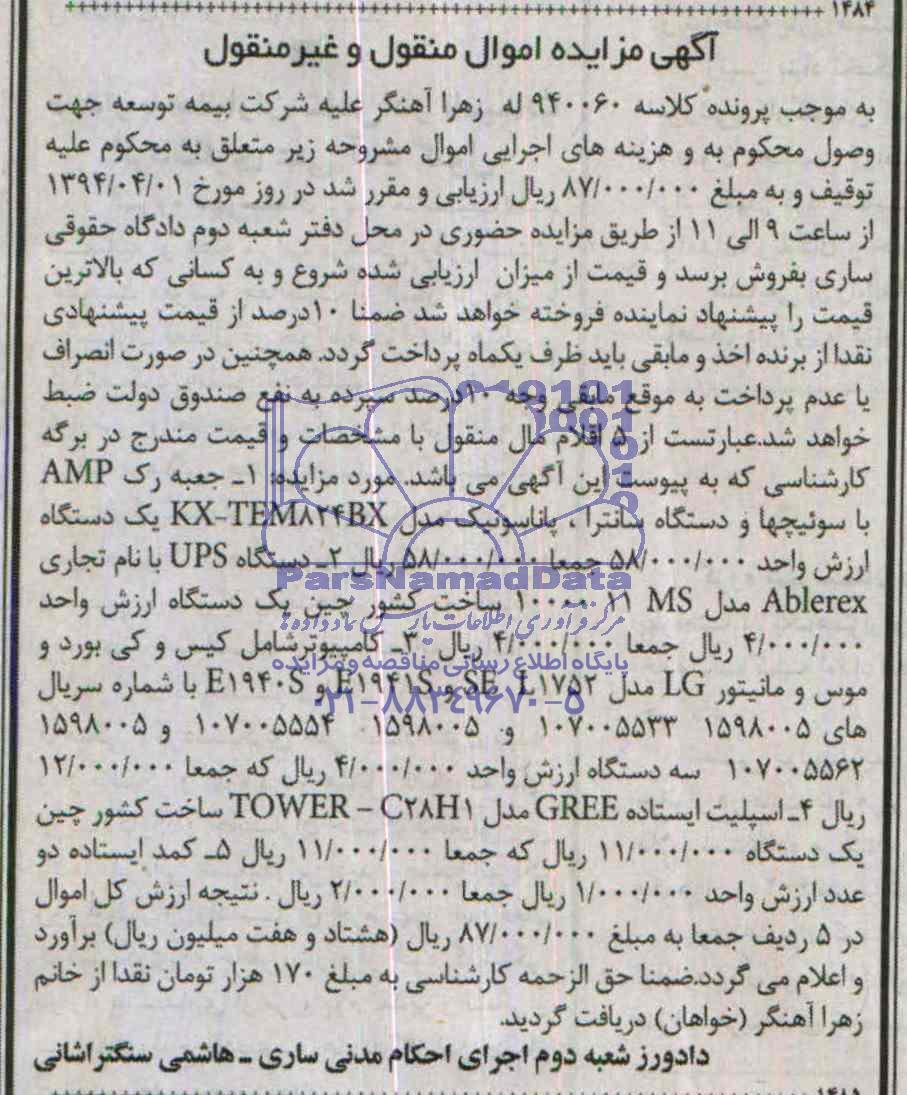 ۱۴۸۴
آگهی مزایده اموال منقول و غیرمنقول
به موجب پرونده کلاسه ۹۴۰۰۶۰ له زهرا آهنگر علیه شرکت بیمه توسعه جهت
وصول محکوم به و هزینه های اجرایی اموال مشروحه زیر متعلق به محکوم علیه
توقیف و به مبلغ ۸۷/۰۰۰/۰۰۰ ریال ارزیابی و مقرر شد در روز مورخ ۱۳۹۴/۰۴/۰۱
از ساعت ۹ الی ۱۱ از طریق مزایده حضوری در محل دفتر شعبه دوم دادگاه حقوقی
ساری بفروش برسد و قیمت از میزان ارزیابی شده شروع و به کسانی که بالاترین
قیمت را پیشنهاد نماینده فروخته خواهد شد ضمنا ۱۰درصد از قیمت پیشنهادی
نقدا از برنده اخذ و مابقی باید ظرف یکماه پرداخت گردد. همچنین در صورت انصراف
یا عدم پرداخت به موقع مابقی وجه ۱۰درصد سپرده به نفع صندوق دولت ضبط
خواهد شد.عبارتست از ۵ اقلام مال منقول با مشخصات و قیمت مندرج در برگه
کارشناسی که به پیوست این آگهی می باشد. مورد مزایده: ۱ـ جعبه رک AMP
با سوئیچها و دستگاه سانترا ، پاناسونیک مدل KX-TEM۸۲۴BX یک دستگاه
ارزش واحد ۵۸/۰۰۰/۰۰۰ جمعا ۵۸/۰۰۰/۰۰۰ ریال ۲ـ دستگاه UPS با نام تجاری
ParsNamadData
Ablerex مدل MS ۱۱ ۱۰۰۰ ساخت کشور چین یک دستگاه ارزش واحد
مرکز فرآوری اطلاعات پارس نماد داده ها
۴/۰۰۰/۰۰۰ ریال جمعا ۴/۰۰۰/۰۰۰ ریال ۳ـ کامپیوترشامل کیس و کی بورد و
پایگاه اطلاع رسانی مناقصه و مزایده
موس و مانیتور LG مدل L۱۷۵۲ SE و E۱۹۴۱S و E۱۹۴۰S با شماره سریال
۰۲۱-۸۸۳۴۹۶۷۰-۵
های ۱۵۹۸۰۰۵ ۱۰۷۰۰۵۵۳۳ و ۱۵۹۸۰۰۵ ۱۰۷۰۰۵۵۵۴ و ۱۵۹۸۰۰۵
۱۰۷۰۰۵۵۶۲ سه دستگاه ارزش واحد ۴/۰۰۰/۰۰۰ ریال که جمعا ۱۲/۰۰۰/۰۰۰
ریال ۴ـ اسپلیت ایستاده GREE مدل TOWER – C۲۸H۱ ساخت کشور چین
یک دستگاه ۱۱/۰۰۰/۰۰۰ ریال که جمعا ۱۱/۰۰۰/۰۰۰ ریال ۵ـ کمد ایستاده دو
عدد ارزش واحد ۱/۰۰۰/۰۰۰ ریال جمعا ۲/۰۰۰/۰۰۰ ریال . نتیجه ارزش کل اموال
در ۵ ردیف جمعا به مبلغ ۸۷/۰۰۰/۰۰۰ ریال (هشتاد و هفت میلیون ریال) برآورد
و اعلام می گردد.ضمنا حق الزحمه کارشناسی به مبلغ ۱۷۰ هزار تومان نقدا از خانم
زهرا آهنگر (خواهان) دریافت گردید.
دادورز شعبه دوم اجرای احکام مدنی ساری ـ هاشمی سنگتراشانی